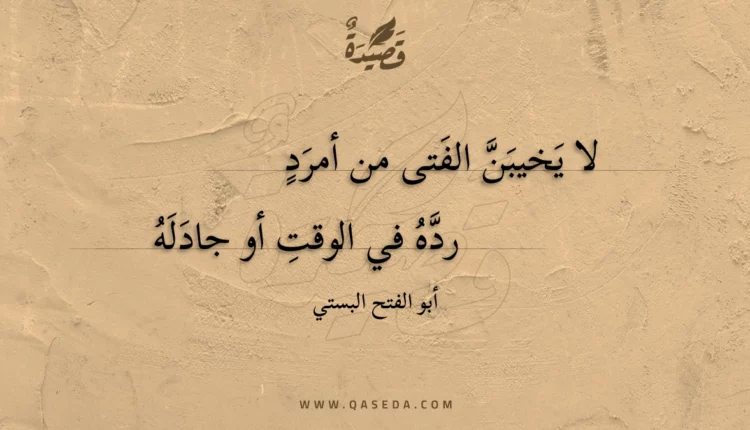 قَصِيدَةٌ
لا يَخيبَنَّ الفَتى من أمرَدٍ
ردَّهُ في الوقتِ أو جادَلَهُ
أبو الفتح البستي
WWW.QASEDA.COM